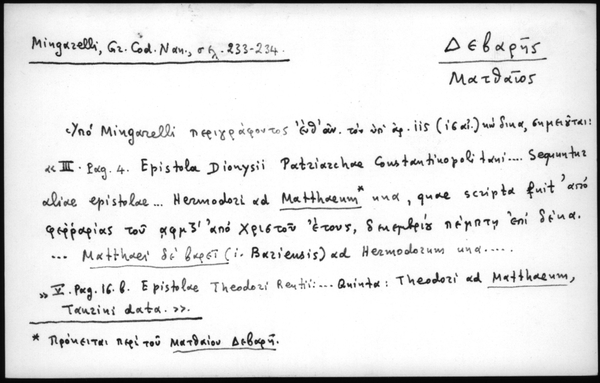 Mingarelli, Gr. Cod. Nan., σελ. 233-234.
Δεβαρῆς
Ματθαῖος
Ὑπό Mingarelli περιγράφοντος ἐνθ' ἀν. τόν ὑπ' ἀρ. iis (ἰσαί.) κώδικα, σημειοῦται:
«III. Pag. 4. Epistola Dionysii Patriarchae Constantinopolitani.... Sequuntur
aliae epistolae... Hermodori ad Matthaeum* una, quae scripta fuit ἀπό
φερράριας τοῦ αφμζ' ἀπό Χριστοῦ ἔτους, δεκεμβρίῳ πέμπτῃ ἐπί δέκα.
... Matthaei δέ βαρεῖ (i. Bariensis) ad Hermodorum una.....
» V. Pag. 16. b. Epistolae Theodori Rentii:... Quinta: Theodori ad Matthaeum,
Taurini data.».
* Πρόκειται περί τοῦ Ματθαίου Δεβαρῆ.